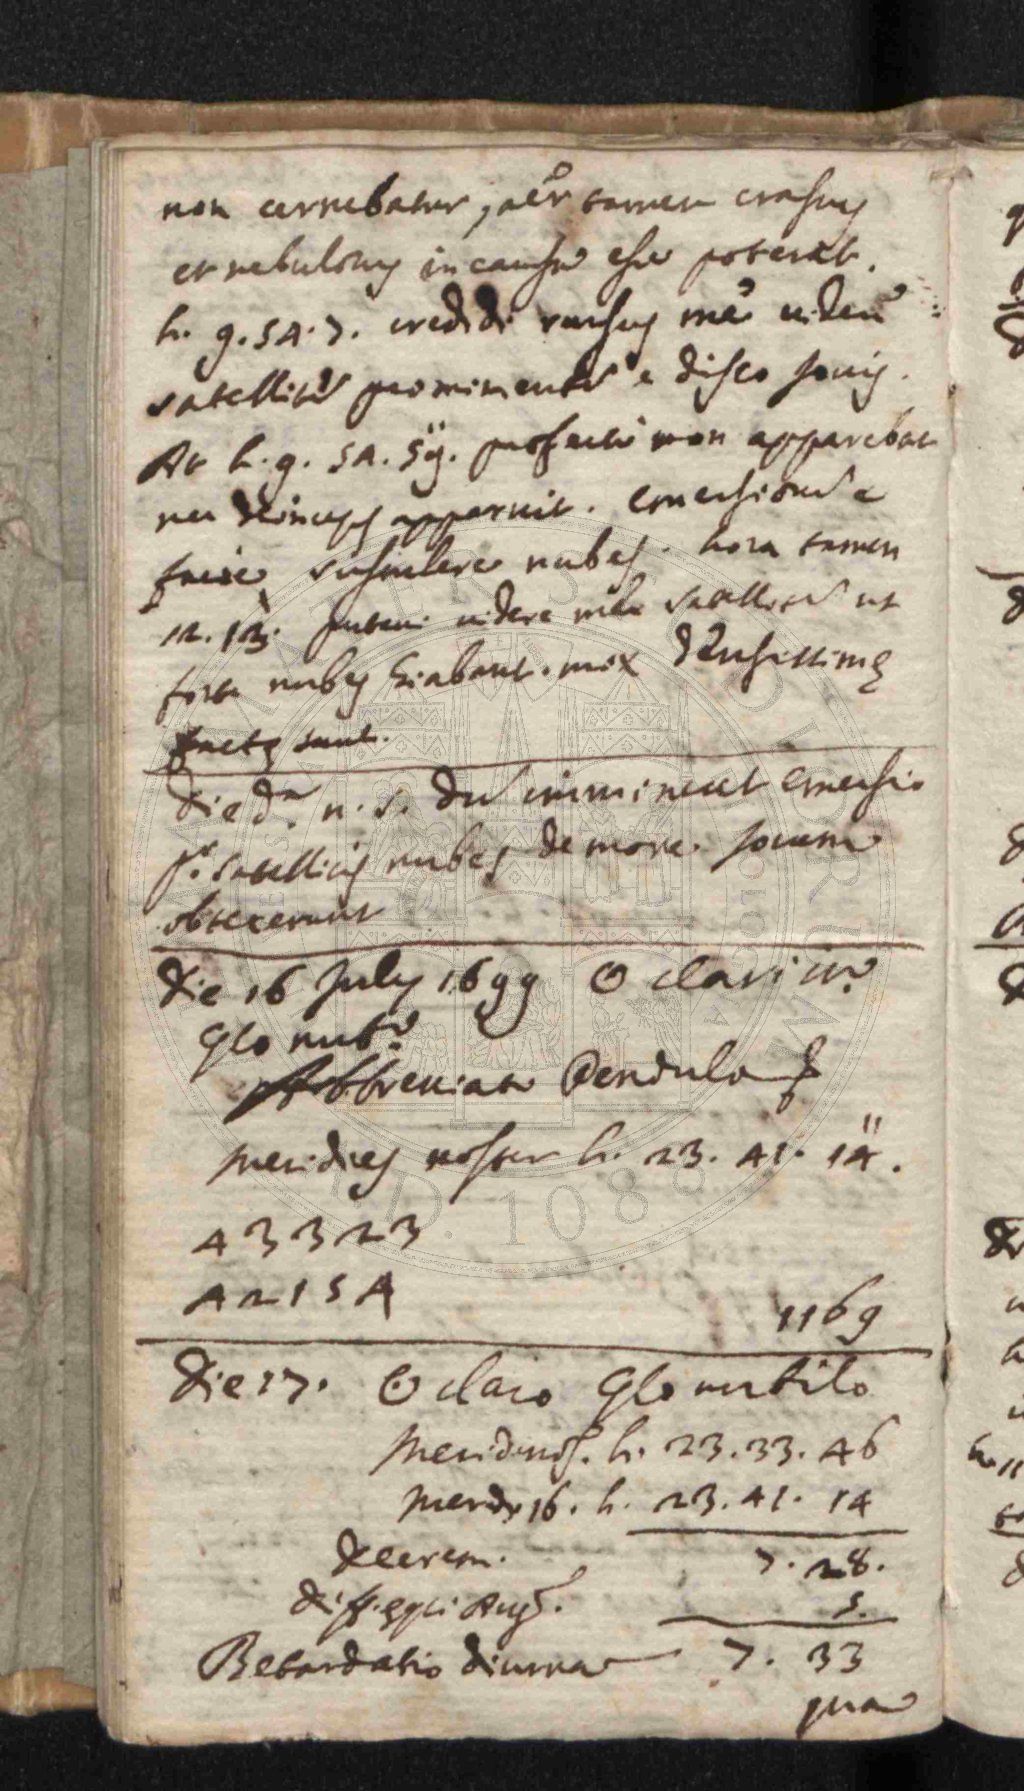 non cernebatur, aër tamen crassus
et nebulosus in causa esse poterat.
h. 9. 54. 7. credidi rursus me videre
satellitem prominente e disco Jovis.
At h. 9. 54. 59". profecto non apparebat
nec deinceps apparuit. emersionem e
facie sustulere nubes. hora tamen
12. 13. putavi videre me satellitem ut
forte nubes hiabant. mox densissimę
factę sunt.
die d.ª n. s. dum immineret emersio
p.i satellitis nubes de more Jovem
obtexerunt
Die 16 July 1699 ☉ claric.
Glo nub.
Abbreviata Pendula
Meridies noster h. 23. 41. 14".
43323
42154
1169
Die 17. ☉ claro Glo nubilo
Merid. nos. h. 23. 33. 46
Merid. 16. h. 23. 41. 14
decrem. 7. 28.
diff. ęqu. Aug. 5.
Retardatio diurna 7. 33
qua